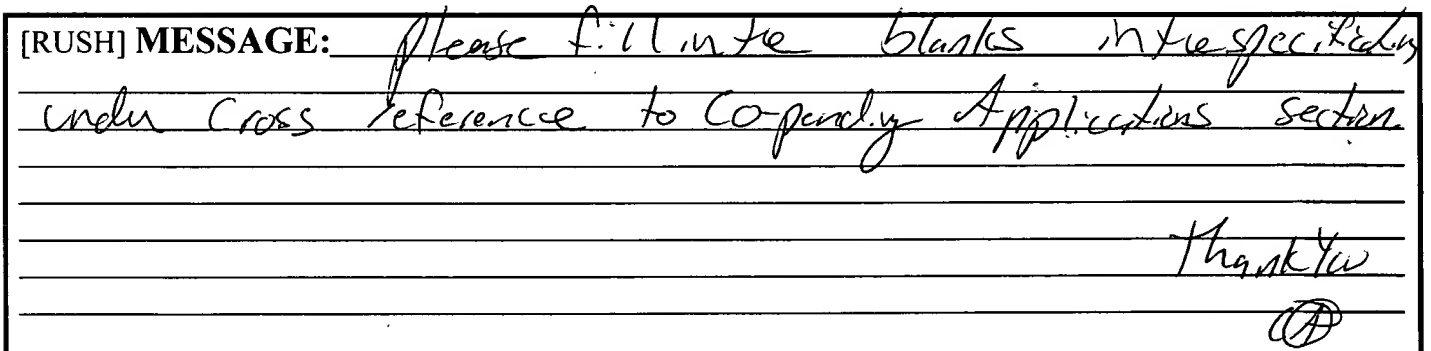 [RUSH] MESSAGE: Please fill in the blanks in the specification
under Cross reference to Co-pending Applications section
Thank You